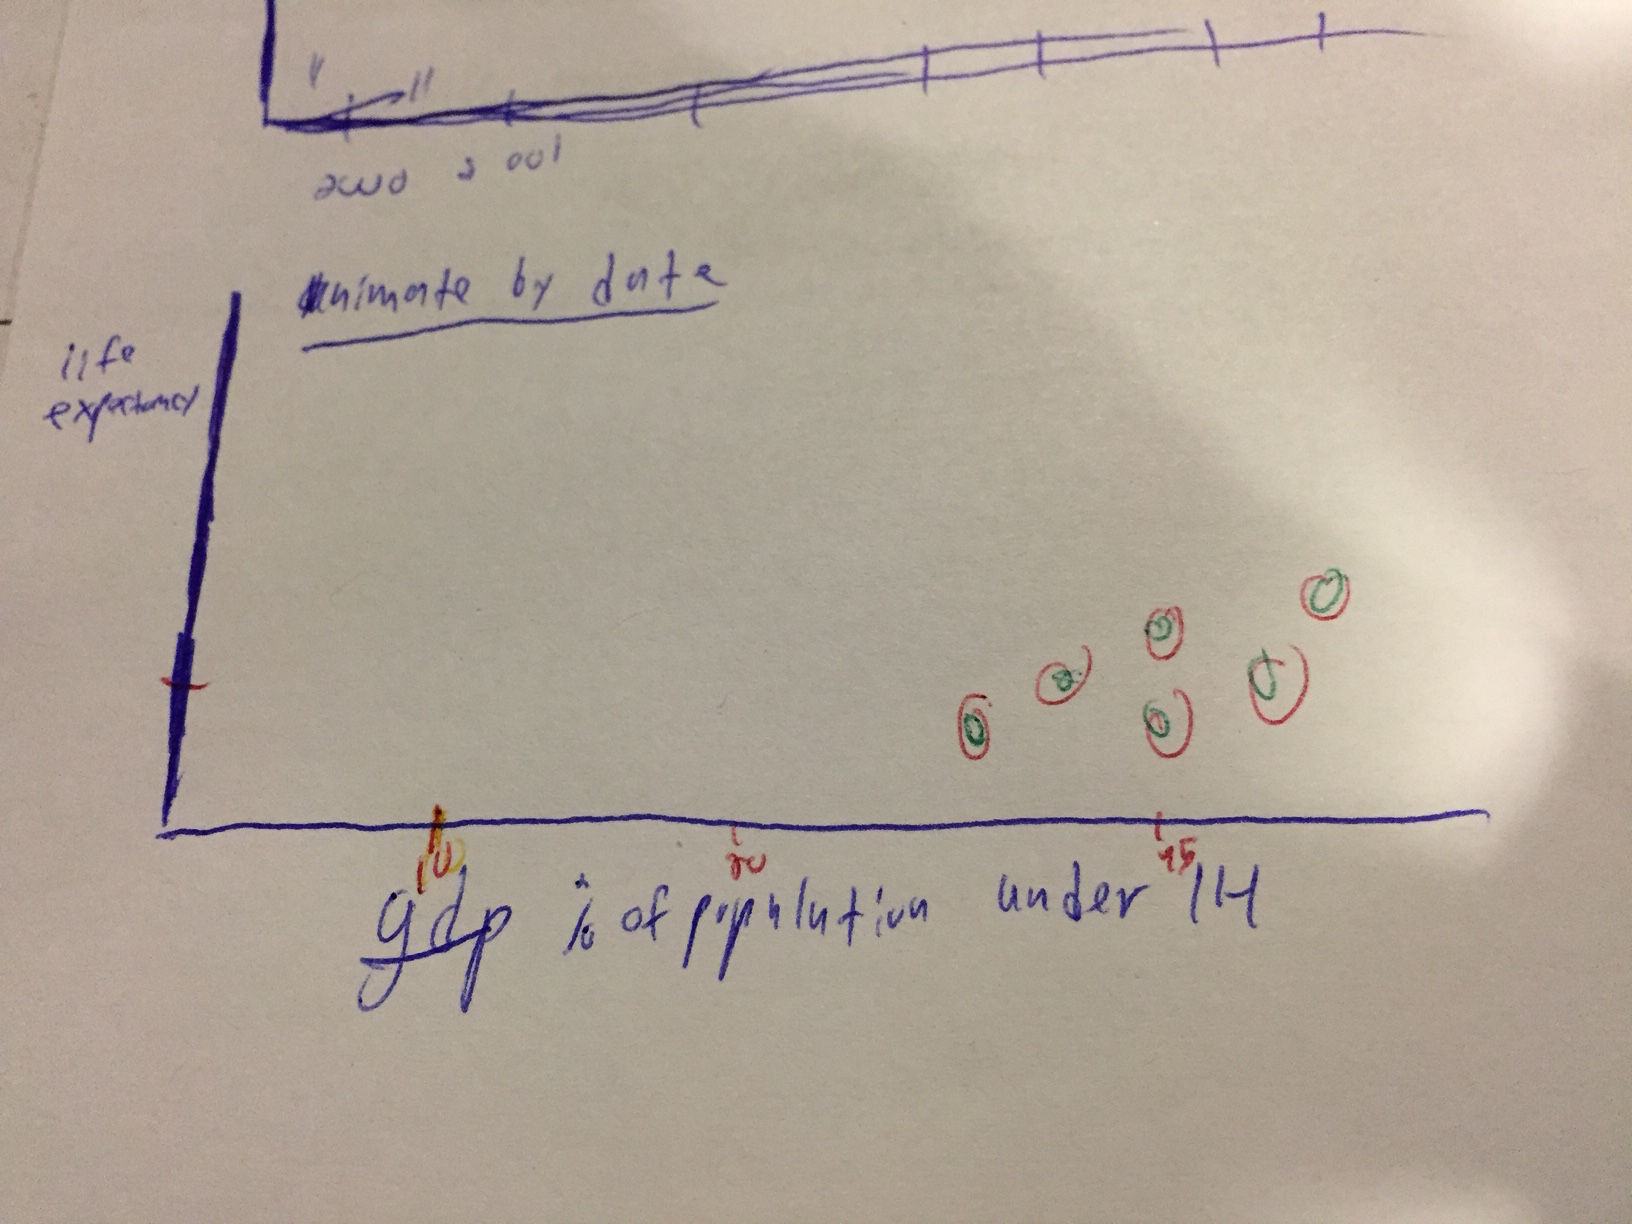 2000 2001
Animate by date
life
expectancy
10 20 45
gdp % of population under 14